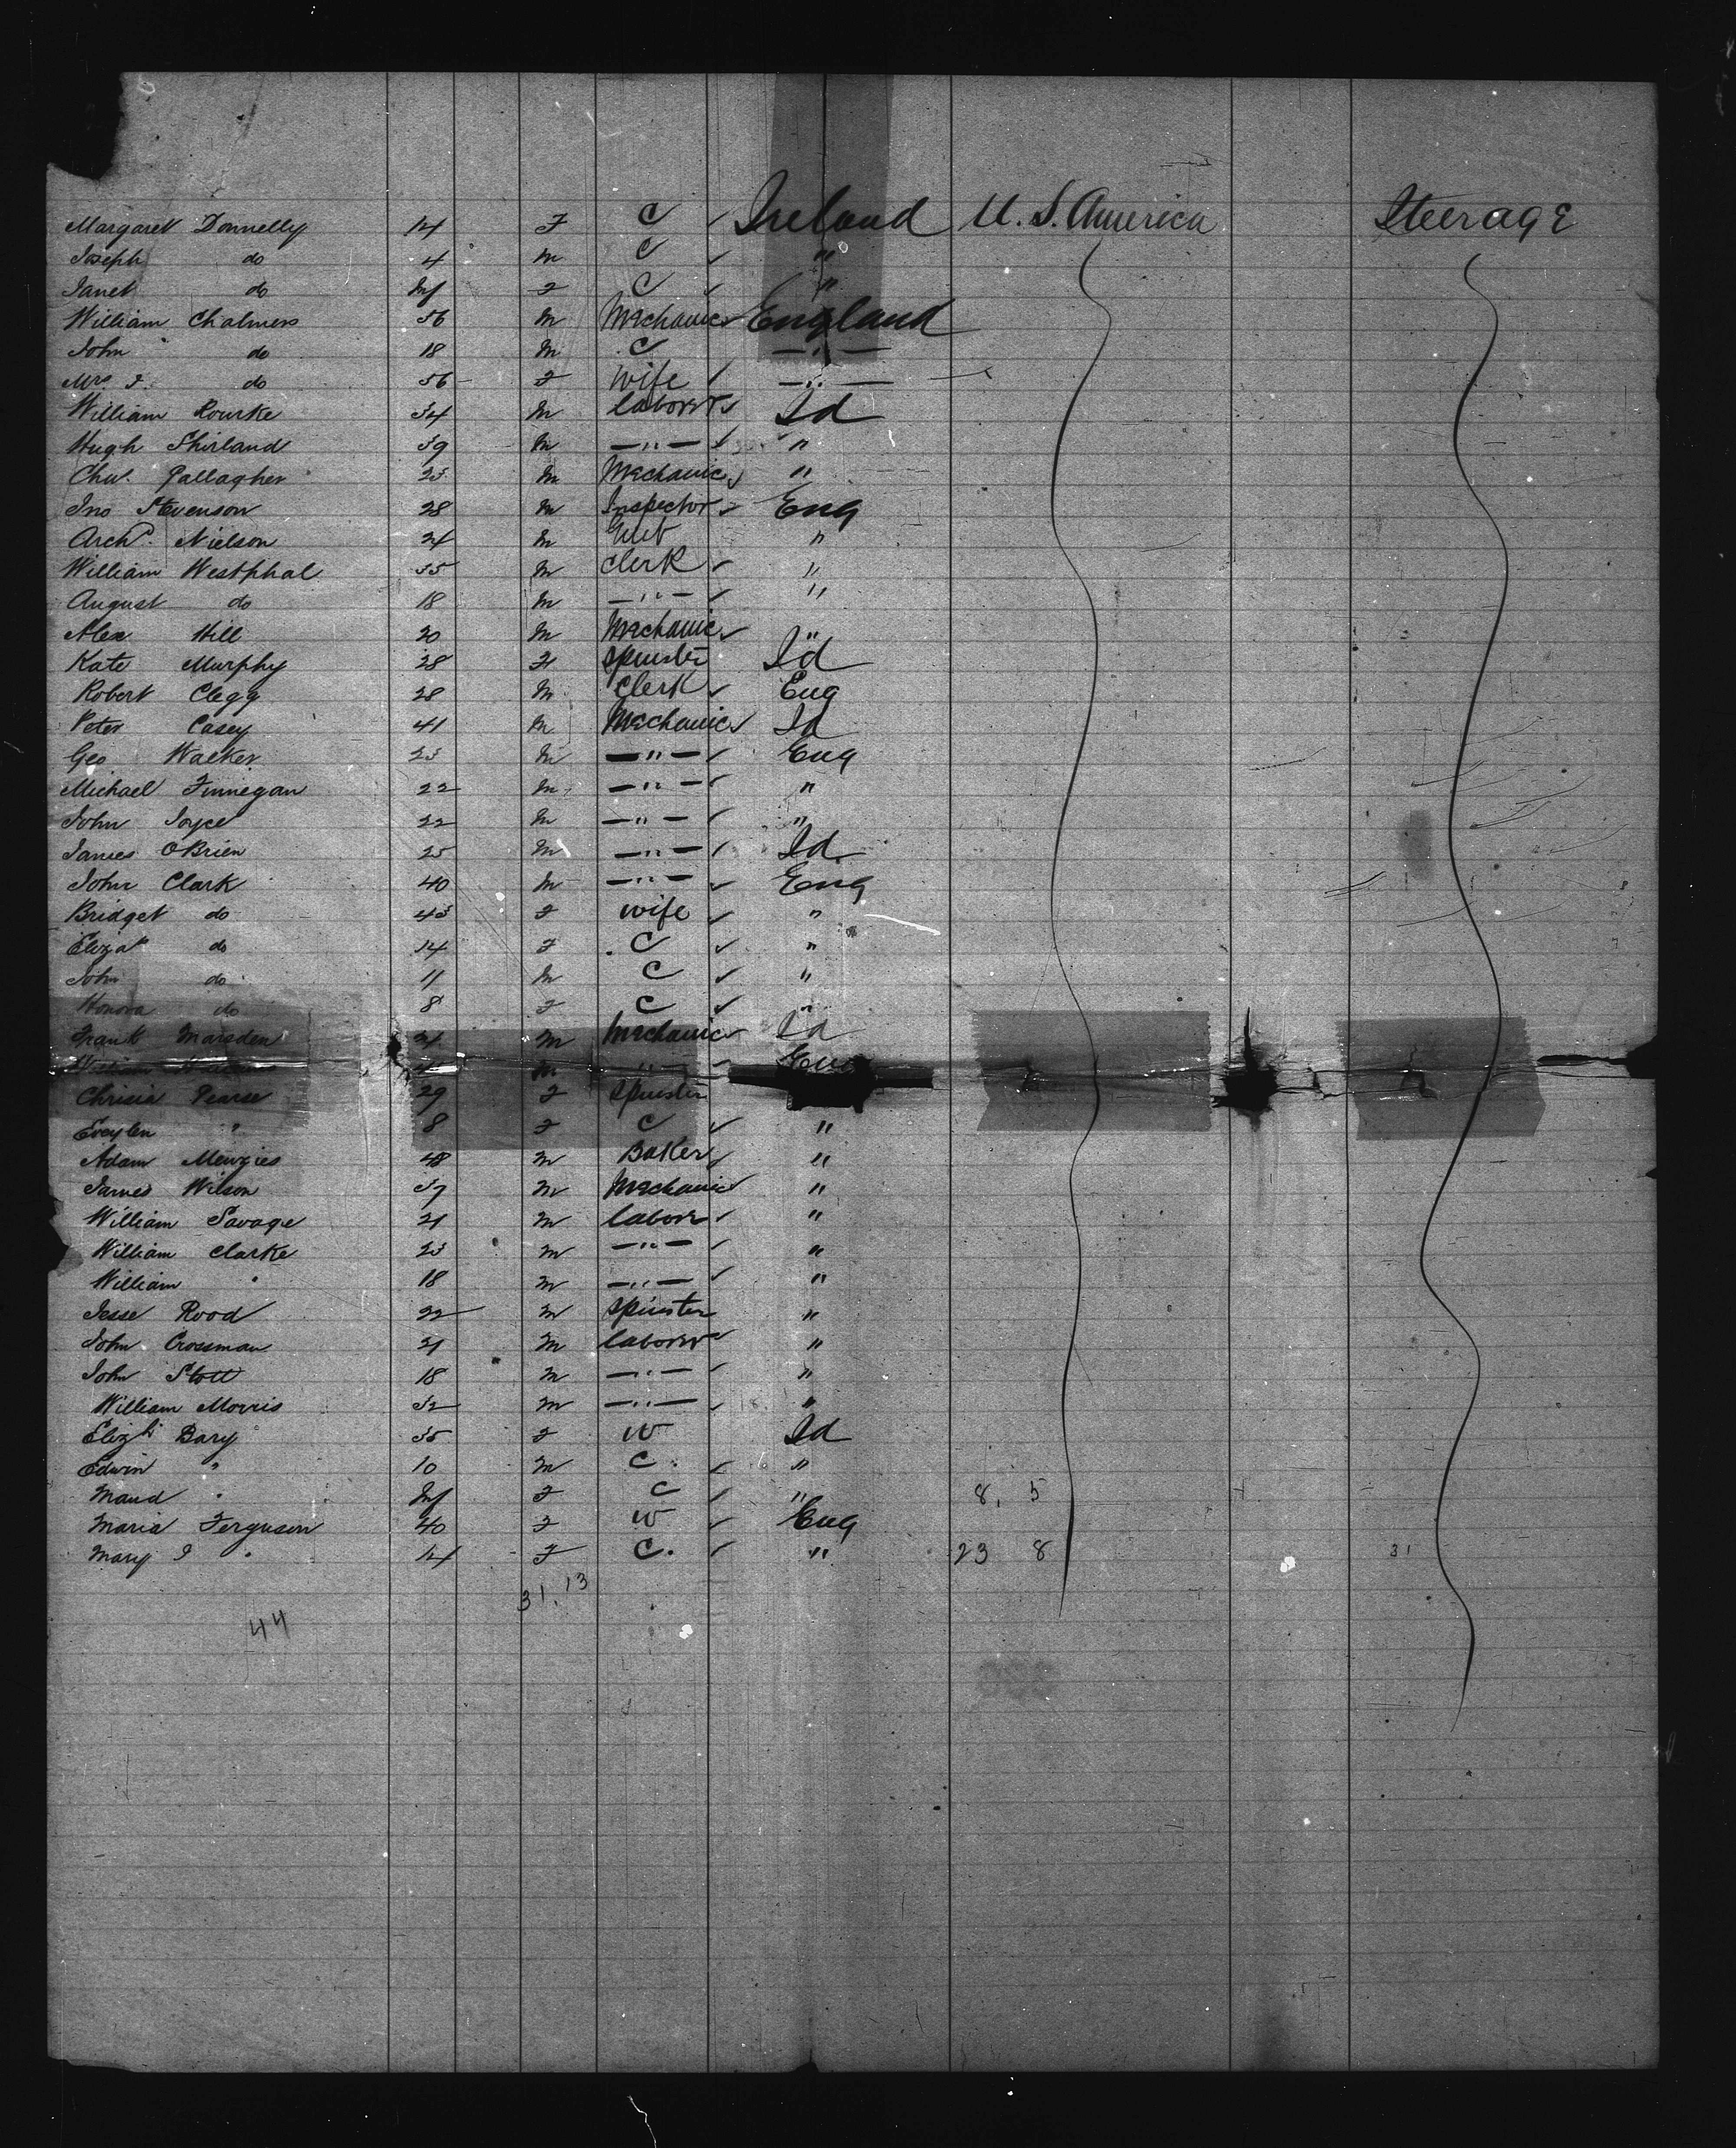 Margaret Donnelly 14 F C ✓ Ireland U. S. America Steerage
Joseph do 4 M C ✓ "
Janet do Inf F C ✓ "
William Chalmers 56 M Mechanic ✓ England
John do 18 M C — " —
Mrs J. do 56 F Wife ✓ — " —
William Rourke 34 M laborer ✓ Id
Hugh Shirland 39 M — " — ✓ "
Chas. Gallagher 25 M Mechanic ✓ "
Jno Stevenson 28 M Inspector ✓ Eng
Archd. Nielson 24 M "
William Westphal 35 M Clerk ✓ "
August do 18 M — " — ✓ "
Alex Hill 20 M Mechanic ✓ "
Kate Murphy 28 F Spinster Id
Robert Clegg 28 M Clerk ✓ Eng
Peter Casey 41 M Mechanic ✓ Id
Geo Walker 23 M — " — ✓ Eng
Michael Finnegan 22 M — " — ✓ "
John Joyce 22 M — " — ✓ "
James OBrien 25 M — " — ✓ Id
John Clark 40 M — " — ✓ Eng
Bridget do 43 F wife ✓ "
Elizah do 14 F C ✓ "
John do 11 M C ✓ "
Honora do 8 F C ✓ "
Frank Marsden M Mechanic ✓ Id
William M — " — Eng
Chrisie Pearse 29 F Spinster
Eveylen " 8 F C ✓ "
Adam Menzies 48 M Baker ✓ "
James Wilson 37 M Mechanic ✓ "
William Savage 21 M laborer ✓ "
William Clarke 23 M — " — ✓ "
William " 18 M — " — ✓ "
Jesse Rood 22 M Spinster "
John Crossman 21 M laborer ✓ "
John Stott 18 M — " — ✓ "
William Morris 32 M — " — ✓ "
Elizh Bary 35 F W Id
Edwin " 10 M C. ✓ "
Maud " Inf F C ✓ " 8, 5
Maria Ferguson 40 F W ✓ Eng
Mary J " 14 F C. ✓ " 23 8 31
31, 13
44